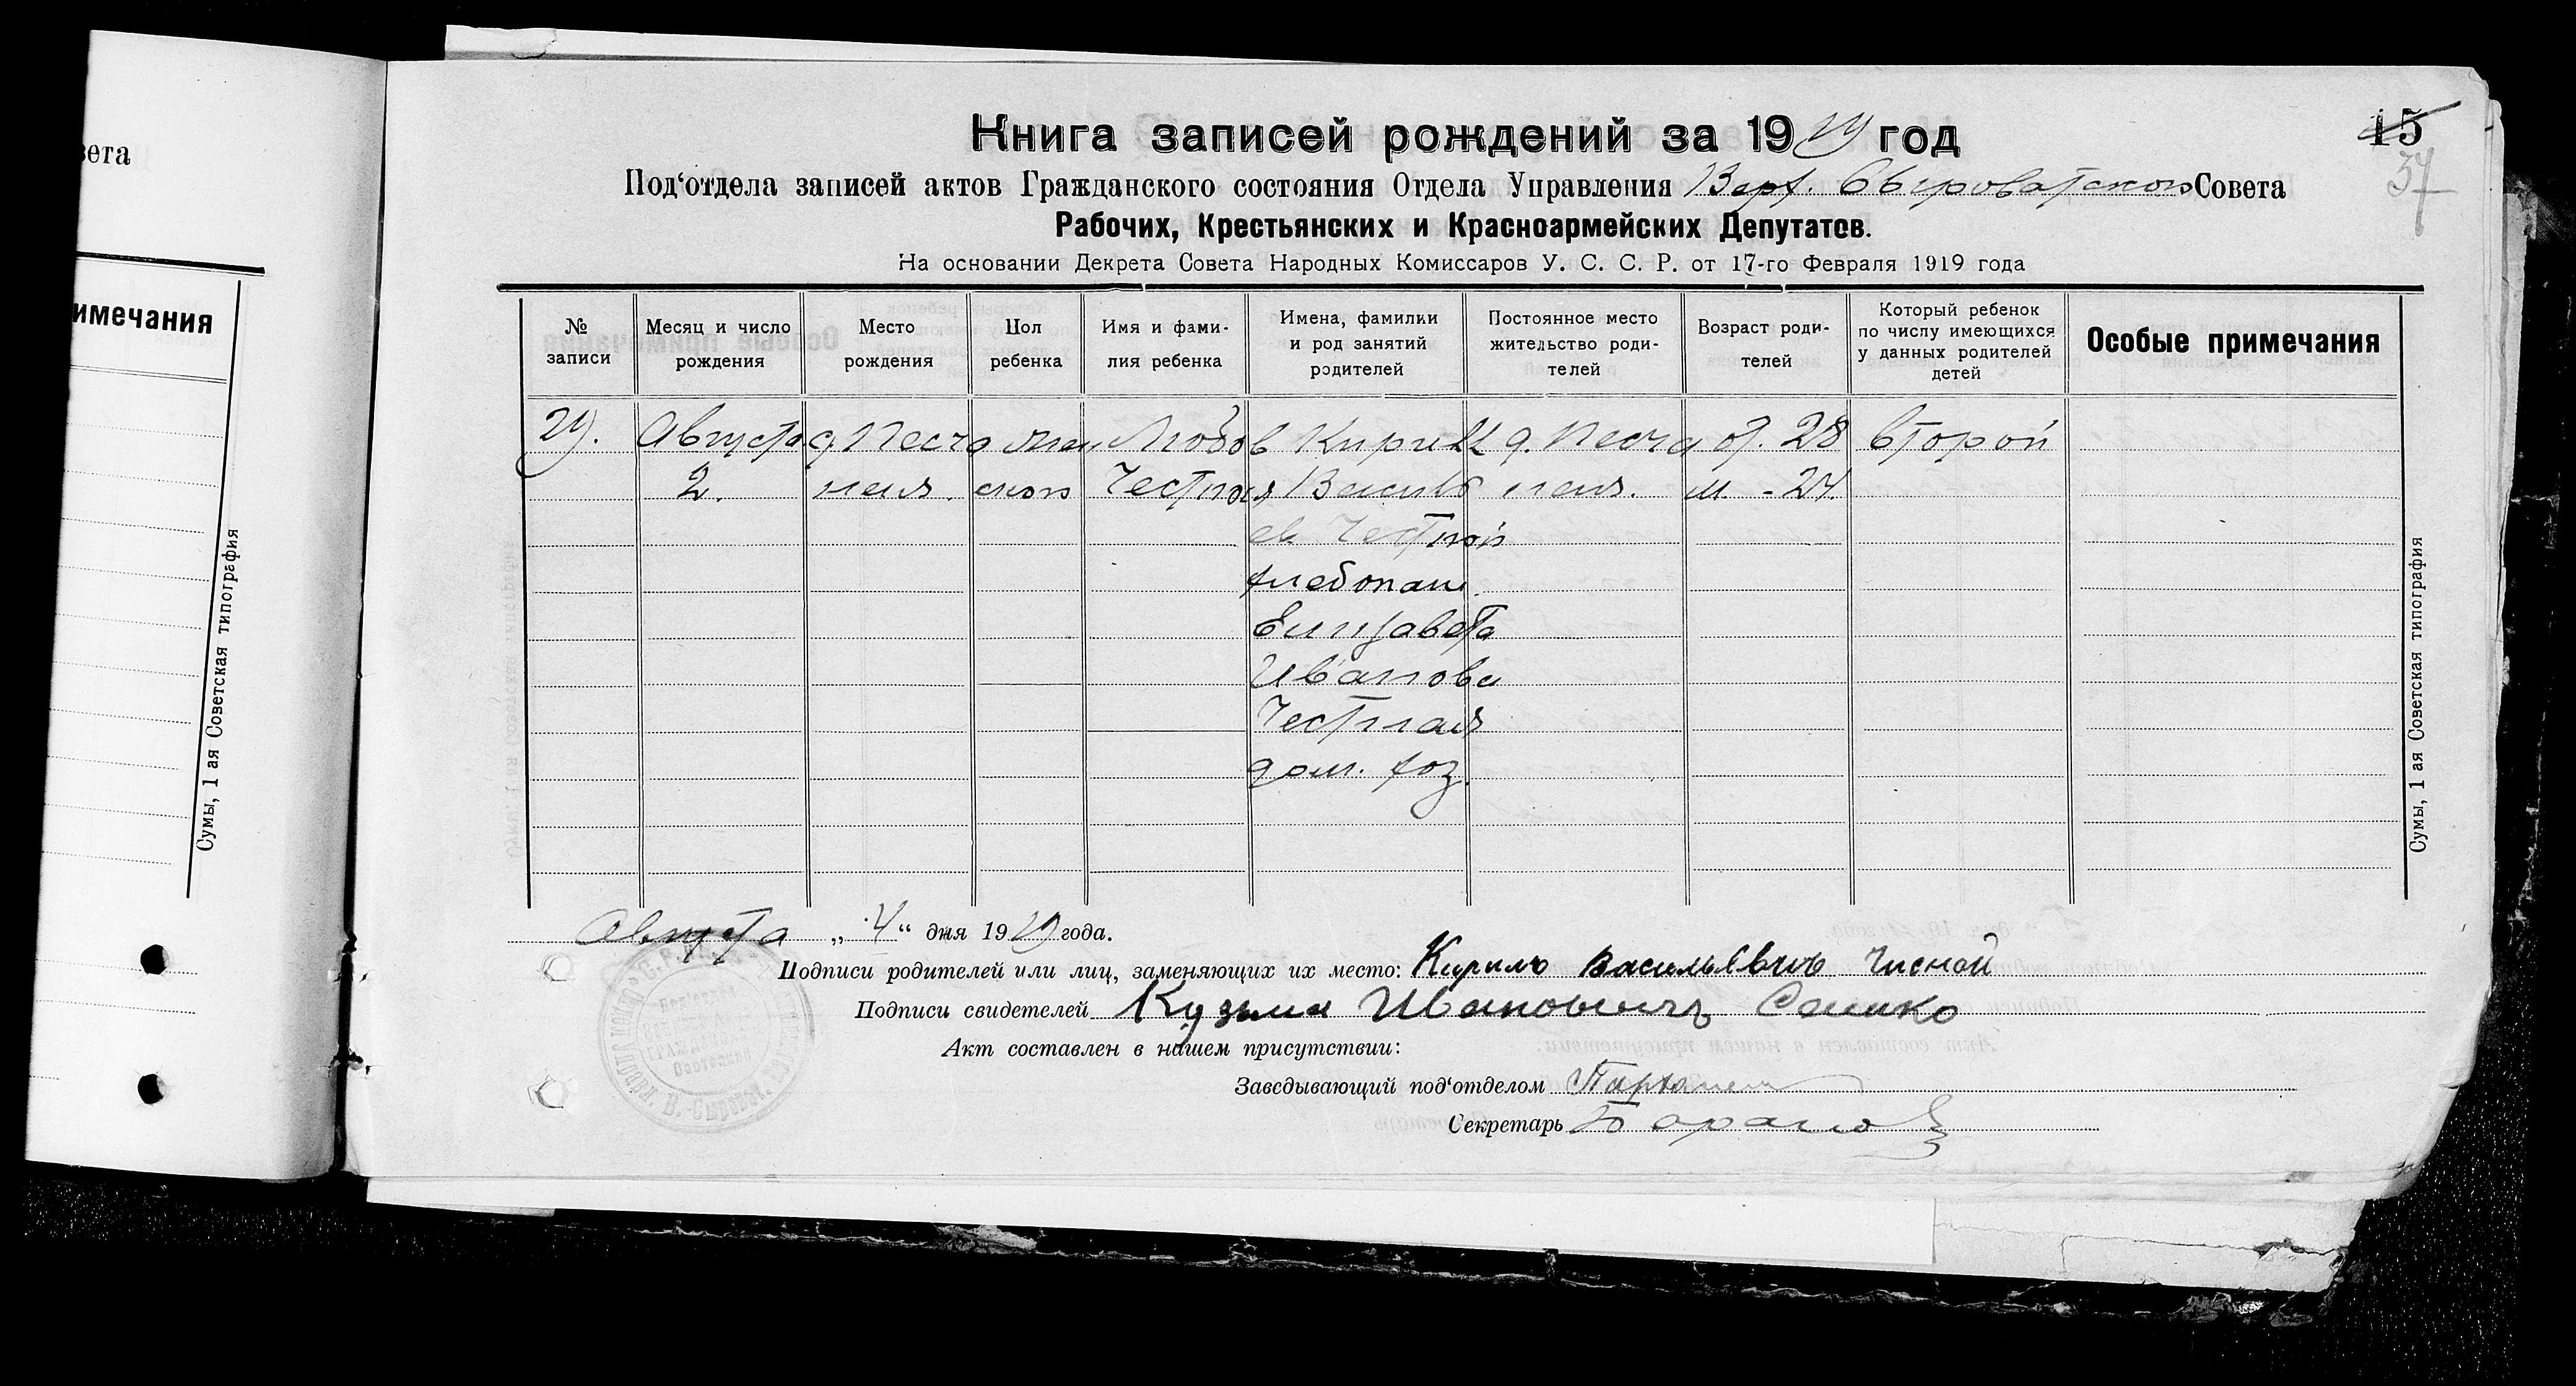 вета
имечания
Сумы, 1 ая Советская типография
Книга записей рождений за 1919 год
15
37
Под‘отдела записей актов Гражданского состояния Отдела Управления Верх. Сыроватского Совета
Рабочих, Крестьянских и Красноармейских Депутатов.
На основании Декрета Совета Народных Комиссаров У. С. С. Р. от 17-го Февраля 1919 года
№ записи
Месяц и число рождения
Место рождения
Пол ребенка
Имя и фами-лия ребенка
Имена, фамилки и род занятий родителей
Постоянное место жительство роди-телей
Возраст роди-телей
Который ребенок по числу имеющихся у данных родителей детей
Особые примечания
Августа д. Песча жен Любов Кирилл д. Песча о. 28 второй
2. ная. ского Честная Василь ная. м. - 24.
ев Честной
хлебопаш.
Елизавета
Иванова
Честная
дом. хоз.
Сумы, 1 ая Советская типография
Августа „ 4 “ дня 1919 года.
Подписи родителей или лиц, заменяющих их место: Кирило Васильевич Чисной
Подписи свидетелей Кузьма Ивановичъ Сешко
Акт составлен в нашем присутствии:
Заведывающий под‘отделом
Секретарь